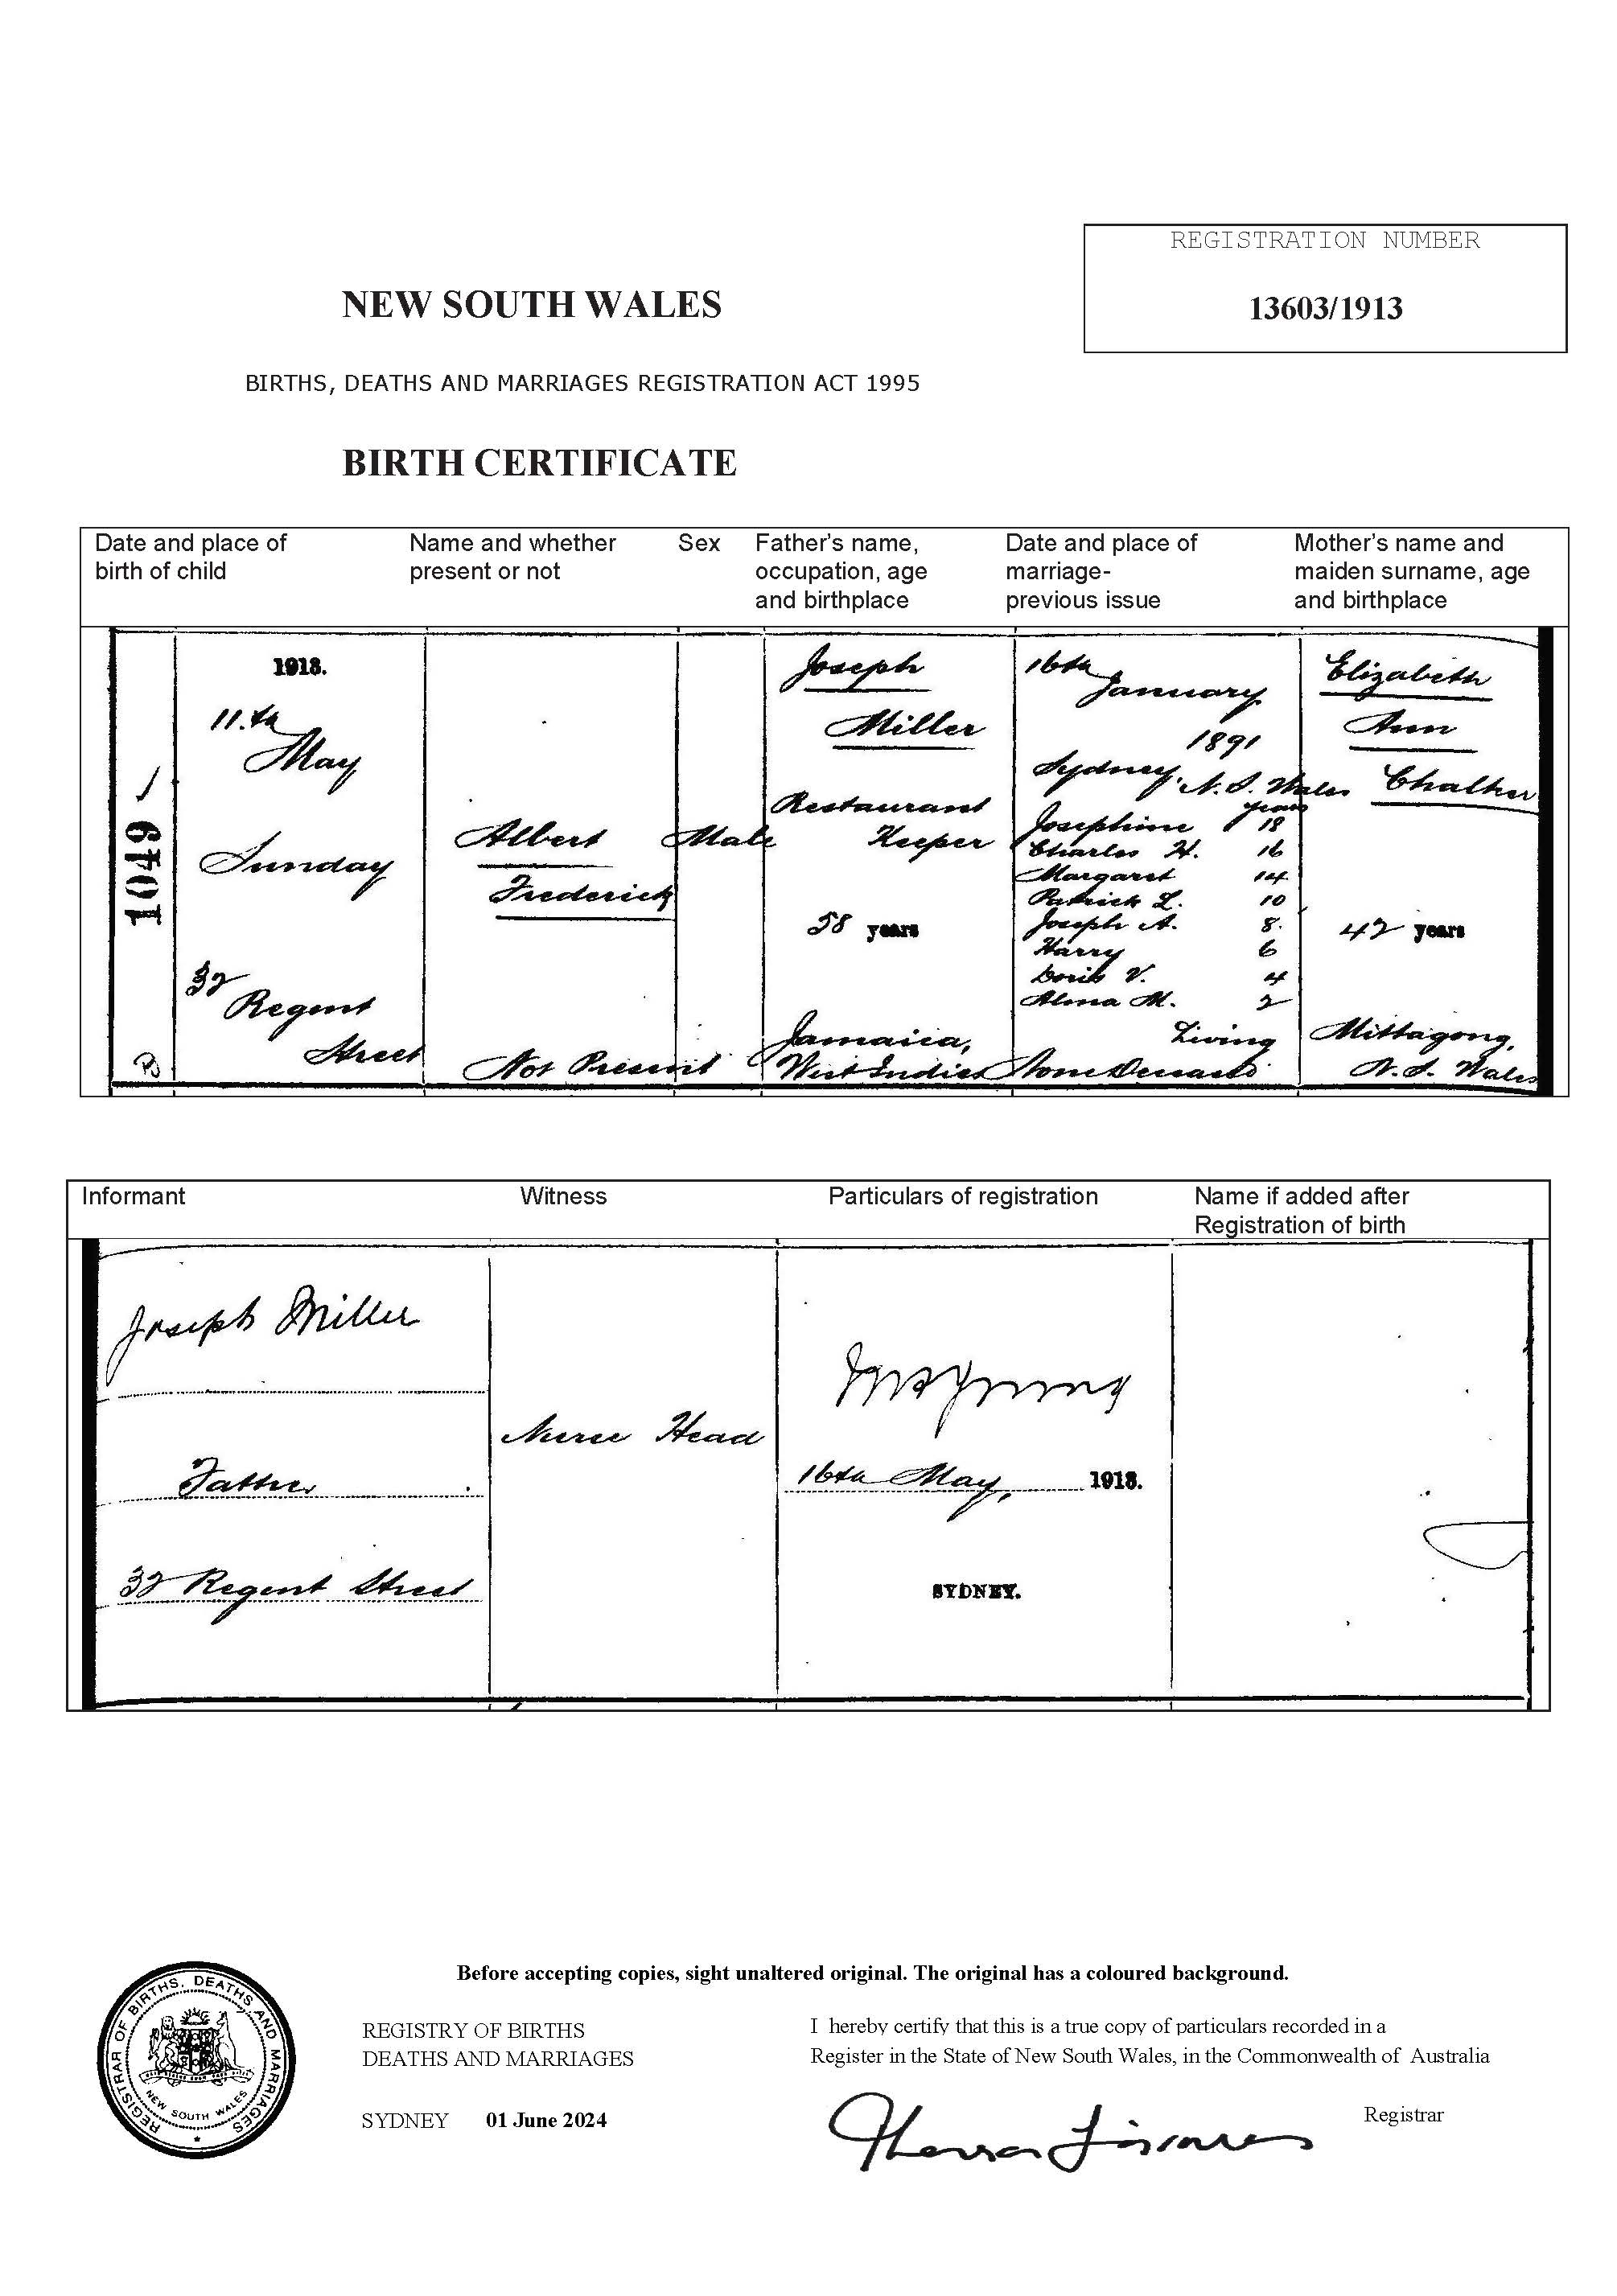 REGISTRATION NUMBER
13603/1913
NEW SOUTH WALES
BIRTHS, DEATHS AND MARRIAGES REGISTRATION ACT 1995
BIRTH CERTIFICATE
Date and place of birth of child
Name and whether present or not
Sex
Father's name, occupation, age and birthplace
Date and place of marriage- previous issue
Mother's name and maiden surname, age and birthplace
1049
1913.
11.th
May
Sunday
32
Regent
Street
Albert
Frederick
Not Present
Male
Joseph
Miller
Restaurant
Keeper
58 years
Jamaica,
West Indies
16th
January
1891
Sydney, N. S. Wales
years
Josephine 18
Charles H. 16
Margaret 14
Patrick L. 10
Joseph A. 8.
Harry 6
Doris V. 4
Alma M. 2
Living
None Deceased
Elizabeth
Ann
Chalker
42 years
Mittagong,
N. S. Wales
Informant
Witness
Particulars of registration
Name if added after
Registration of birth
Joseph Miller
Father
32 Regent Street
Nurse Head
16th May, 1913.
SYDNEY.
Before accepting copies, sight unaltered original. The original has a coloured background.
REGISTRAR OF BIRTHS, DEATHS AND MARRIAGES
NEW SOUTH WALES
REGISTRY OF BIRTHS
DEATHS AND MARRIAGES
SYDNEY 01 June 2024
I hereby certify that this is a true copy of particulars recorded in a
Register in the State of New South Wales, in the Commonwealth of Australia
Registrar